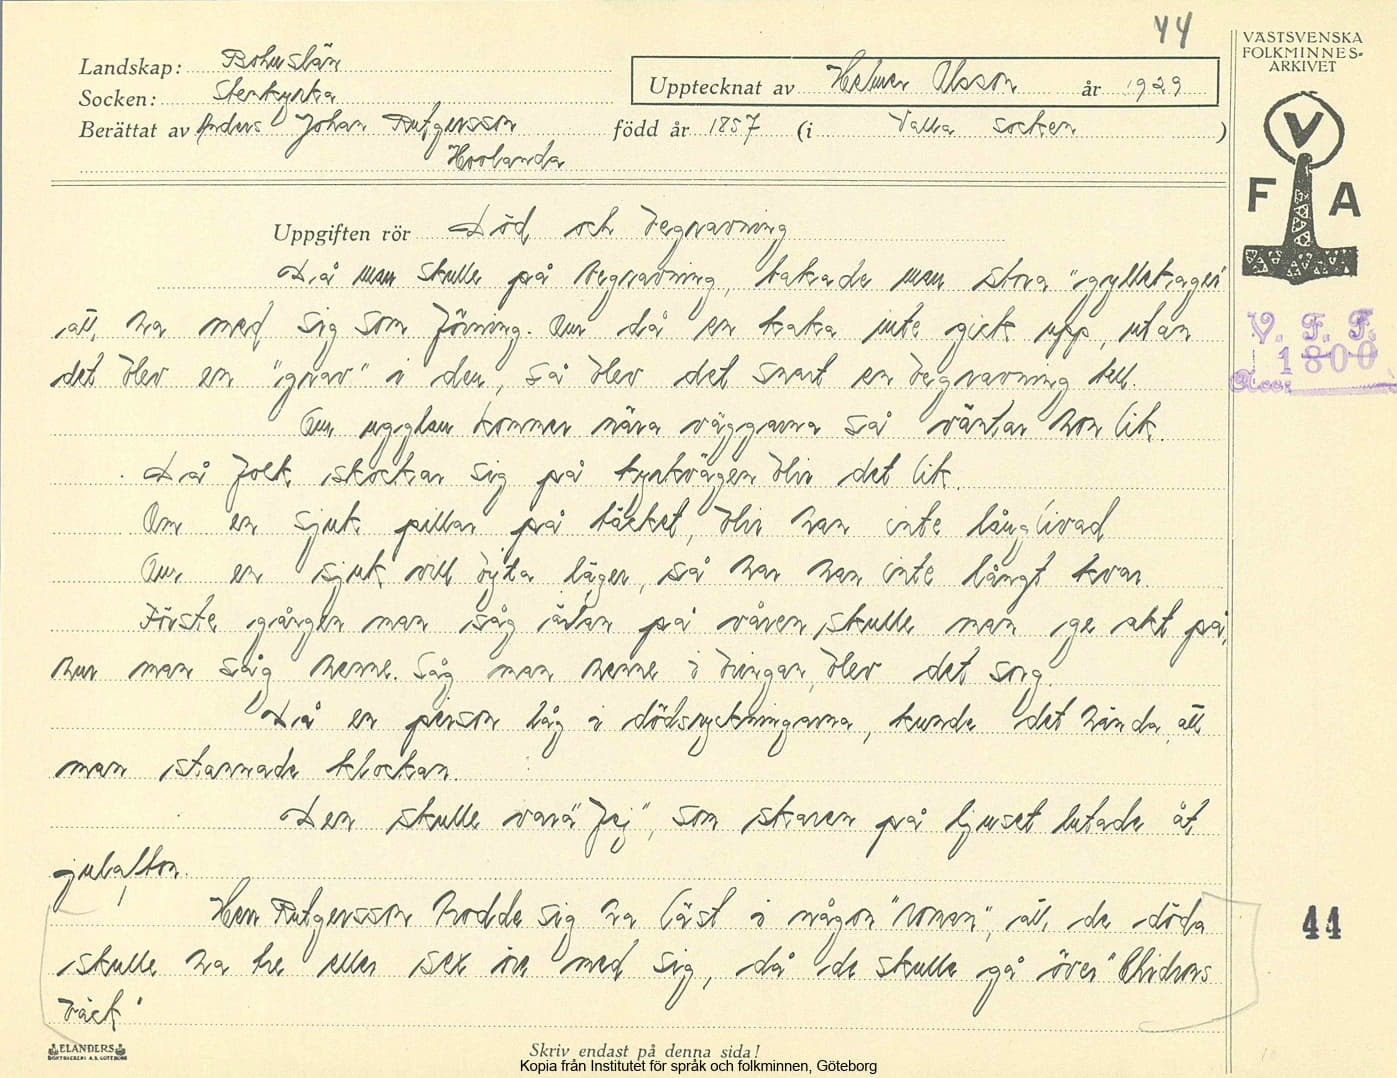 44
VÄSTSVENSKA
FOLKMINNES-
ARKIVET
Landskap: Bohuslän
Socken: Stenkyrka
Upptecknat av Helmer Olsson år 1929
Berättat av Anders Johan Rutgersson född år 1857 (i Valla socken)
Hoolanda
V
F A
Uppgiften rör Död och begravning
Då man skulle på begravning, bakade man stora "gyllekager"
att ha med sig som förning. Om då en kaka inte gick upp, utan
det blev en "grav" i den, så blev det snart en begravning till.
V. F. F.
1800
Acc:
Om ugglan kommer nära väggarna så väntar hon lik.
Då folk skockar sig på kyrkvägen blir det lik.
Om en sjuk pillar på täcket, blir han inte långlivad
Om en sjuk vill byta läger, så har han inte långt kvar.
Förste gången man såg ärlan på våren skulle man ge akt på,
hur man såg henne. Såg man henne i bringan, blev det sorg.
Då en person låg i dödsryckningarna, kunde det hända, att
man stannade klockan.
Den skulle vara "fej", som skaren på ljuset lutade åt
julafton.
Herr Rutgersson trodde sig ha läst i någon "roman", att de döda
skulle ha tre eller sex öre med sig, då de skulle gå över "Chidrons
bäck"
44
ELANDERS
BOKTRYCKERI A.B. GÖTEBORG
Skriv endast på denna sida!
Kopia från Institutet för språk och folkminnen, Göteborg